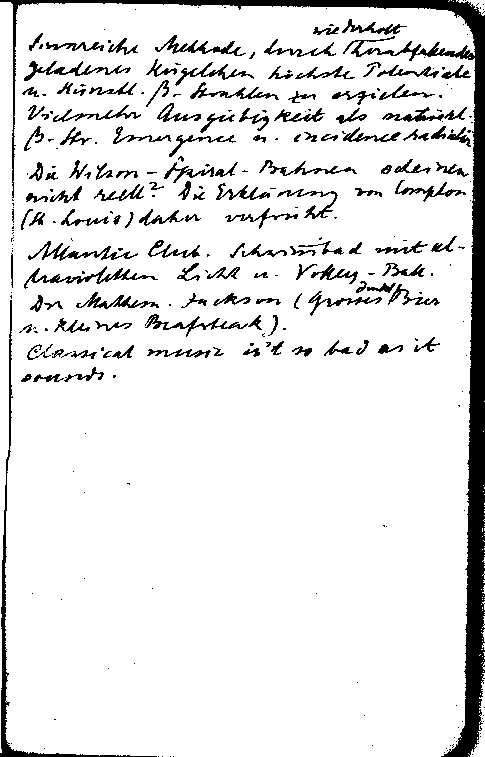 wiederholt
Sinnreiche Methode, durch Herabfallendes
geladenes Kügelchen höchste Potentiale
u. künstl. β-Strahlen zu erzielen.
Vielmehr Ausgiebigkeit als natürl.
β-Str. Emergence u. incidence radiation
Die Wilson-Spiral-Bahnen scheinen
nicht reell? Die Erklärung von Compton
(St. Louis) daher verfrüht.
Atlantic Club. Schwimmbad mit ul-
traviolettem Licht u. Volley-Ball.
dunkl
Der Mathem. Jackson (Grosses Bier
u. kleines Beefsteak).
Classical music is't so bad as it
sounds.